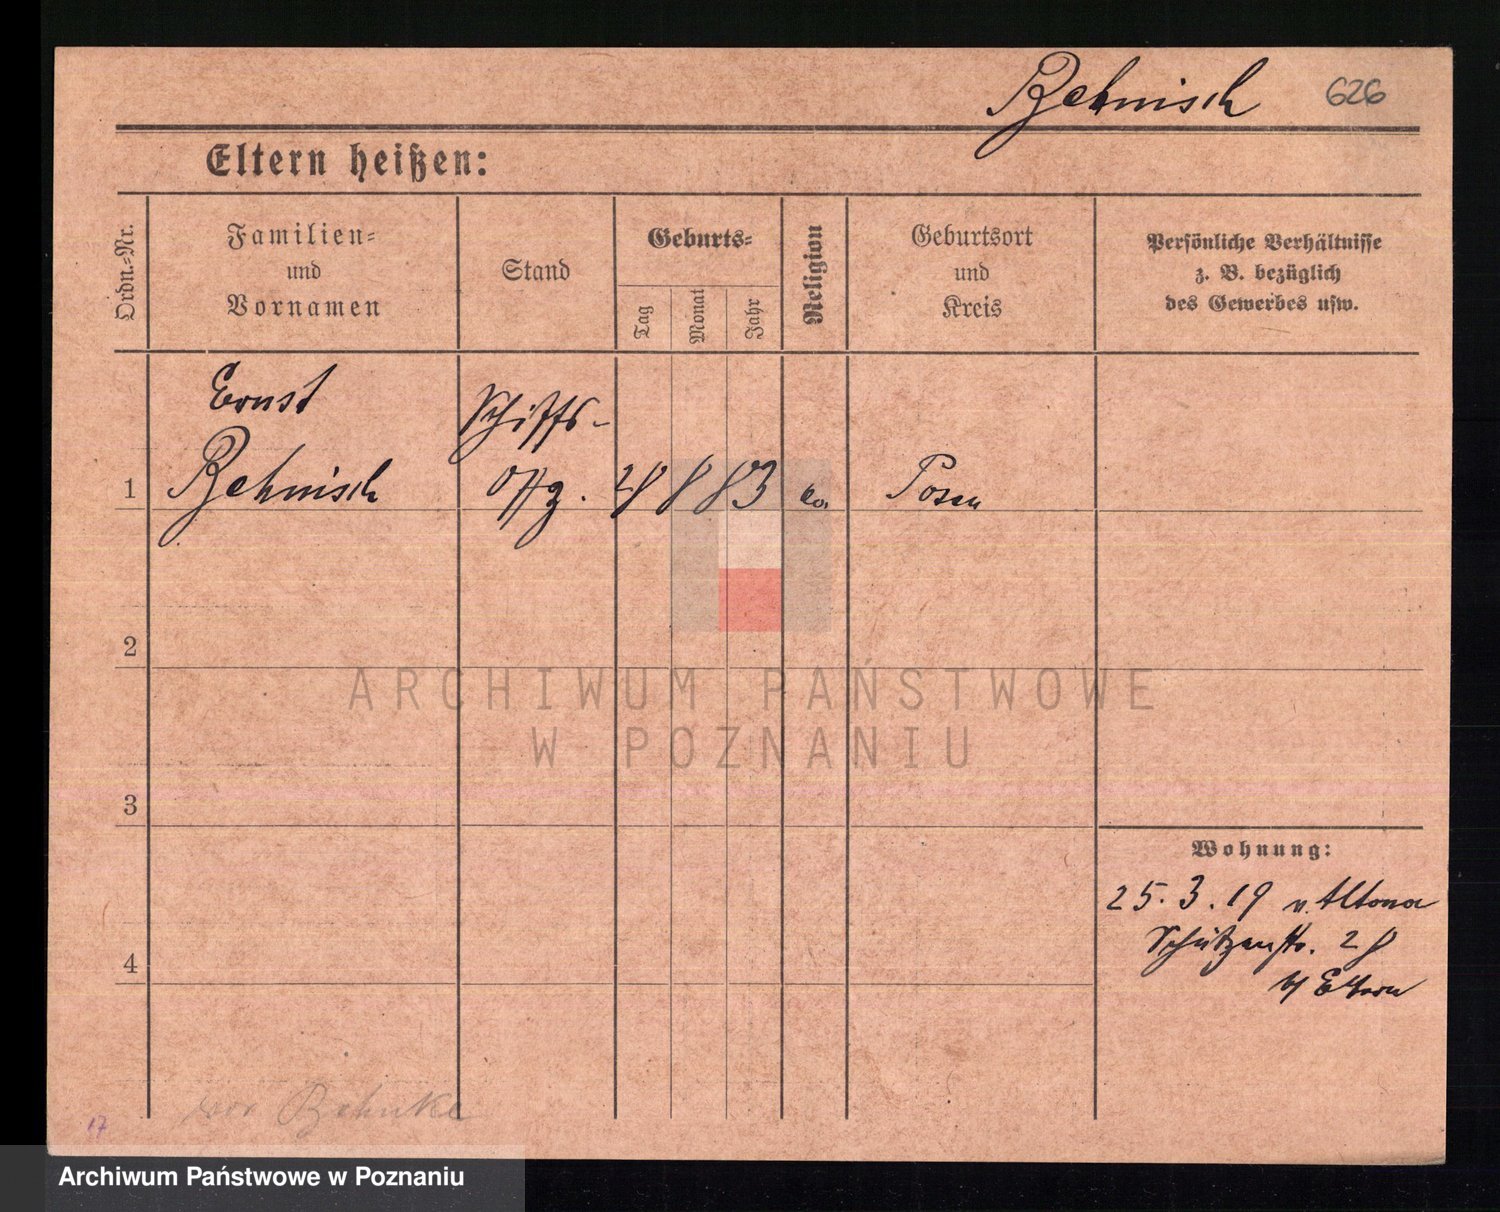 Behnisch 626
Eltern heißen:
Ordn.-Nr.
Familien-
und
Vornamen
Stand
Geburts-
Tag
Monat
Jahr
Religion
Geburtsort
und
Kreis
Persönliche Verhältnisse
z. B. bezüglich
des Gewerbes usw.
Ernst Schiffs-
1 Behnisch Offz. 8 83 ev. Posen
2
3
4
ARCHIWUM PAŃSTWOWE
W POZNANIU
Wohnung:
25.3.19 v. Altona
Schützenstr. 28
b/ Eltern
vor Behnke
17
Archiwum Państwowe w Poznaniu